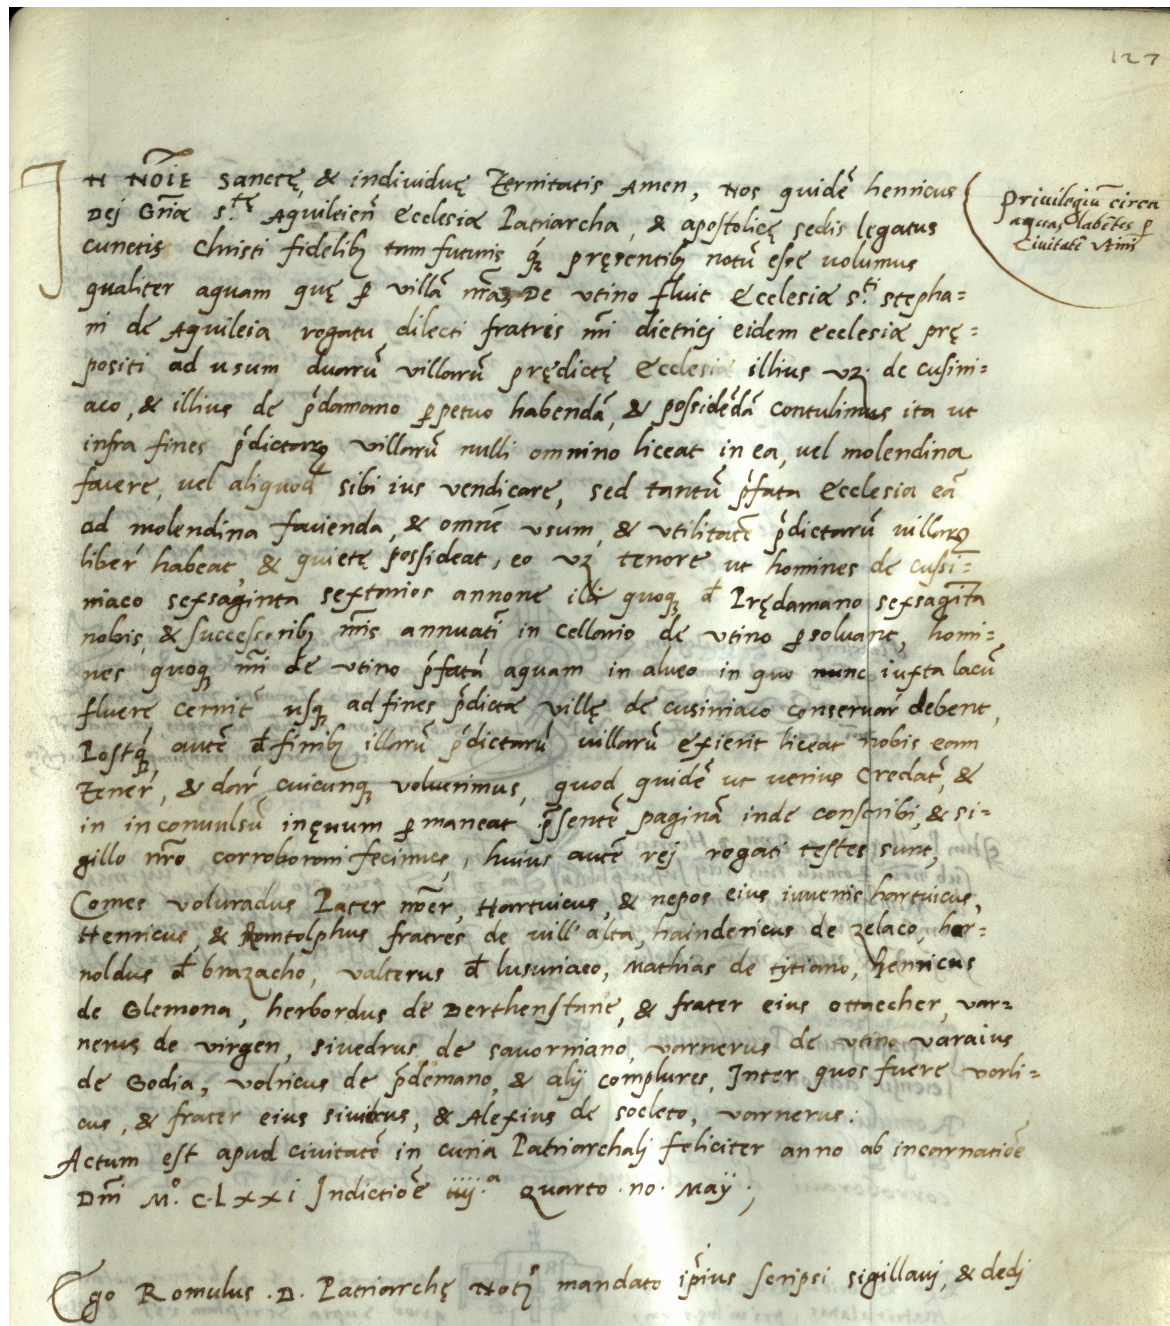 127
Privilegiū circa
aquas labētes p
Civitatē Utini
IN NOĪE Sanctę, & individuę Trinitatis Amen, Nos quidē henricus
Dej Grīa S.tę Aquileieñ Ecclesiæ Patriarcha, & apostolicę sedis legatus
cunctis Christi fidelibꝫ tam futuris ꝗ́ȝ pręsentibꝫ notū esse volumus
qualiter aquam quę ꝑ villā nr̄aȝ De Utino fluit Ecclesiæ S.ti stepha=
ni de Aquileia rogatu dilecti fratris nr̄i dietricj eidem ecclesiæ prę=
positi ad usum duarū villarū prędictę Ecclesiæ illius vȝ: de cusini=
aco, & illius de p̄damano ꝑpetuo habendā, & possidēdā contulimus ita ut
infra fines p̄dictarꝝ villarū nulli omnino liceat in ea, vel molendina
facere, vel aliquod sibi ius vendicare, sed tantū p̄fata Ecclesia eā
ad molendina facienda, & omnē usum, & utilitatē p̄dictarū villarꝝ
liber̄ habeat, & quietę possideat, eo vȝ tenore ut homines de cussi=
niaco sexsaginta sextarios annone illi quoqȝ đ Prędamano sexsagīta
nobis, & successoribꝫ nr̄is annuatī in Cellario de Utino ꝑsoluant, homi=
nes quoqȝ nr̄i de Utino p̄fatā aquam in alveo in quo nunc iuxta lacū
fluere cernit̄ usqȝ ad fines p̄dictæ villę de cusiniaco conservar̄ debent,
Postꝗ́ȝ autē đ finibꝫ illarū p̄dictarū villarū exierit liceat nobis eam
Tener̄, & dar̄ cuicunqȝ voluerimus, quod quidē ut verius Credat̄, &
in inconvulsū inęvum ꝑmaneat p̄sentē paginā inde conscribi, & si-
gillo nr̄o corroborari fecimus, huius autē rej rogati testes sunt,
Comes volvradus Pater nōer, Hartvicus, & nepos eius iuvenis hartvicus,
Henricus, & Romtolphus fratres de vill' alta, haindericus de zelaco, her=
noldus đ brazacho, valterus đ lusuriaco, Mathias de tytiano, henricus
de Glemona, herbordus de Derthenstane, & frater eius ottaecher, var=
nerus de virgen, sivedrus de savorniano, varnerus de Utino varaius
de Godia, volricus de p̄demano, & alij complures, Inter quos fuere vorli=
cus, & frater eius sivitus, & Alexius de socleto, varnerus:
Actum est apud civitatē in curia Patriarchalj feliciter anno ab incarnatiōe
Dm̄i M.º C.L x x i Indictiōe iiij.ª Quarto . no. Maÿ ;
Ego Romulus . D. Patriarchę Notȝ mandato ip̄ius scripsi sigillavj, & dedj